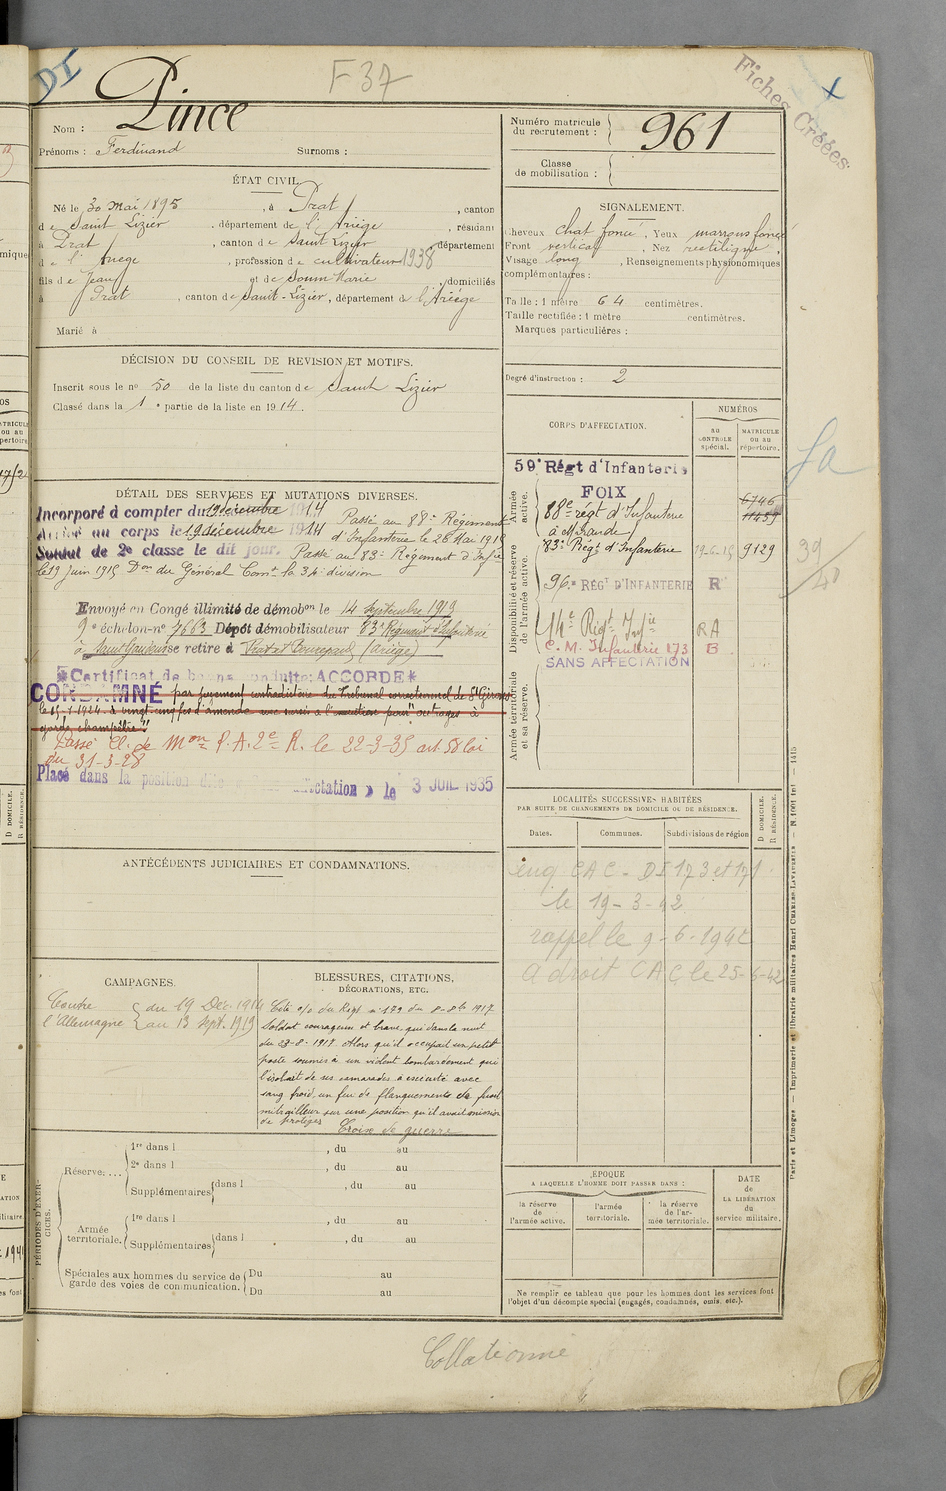 DI
F 37
Fiches Créées
Nom : Pince
Prénoms : Ferdinand Surnoms :
Numéro matricule du recrutement : 961
Classe de mobilisation :
ÉTAT CIVIL.
Né le 30 mai 1895, à Prat, canton
de Saint Lizier, département de l'Ariège, résidant
à Prat, canton de Saint Lizier, département
de l'Ariège, profession de cultivateur 1938
fils de Jean et de Soum Marie, domiciliés
à Prat, canton de Saint-Lizier, département de l'Ariège
Marié à
SIGNALEMENT.
Cheveux chat. foncé, Yeux marrons foncé
Front vertical, Nez rectiligne
Visage long, Renseignements physionomiques
complémentaires :
Taille : 1 mètre 64 centimètres.
Taille rectifiée : 1 mètre centimètres.
Marques particulières :
Degré d'instruction : 2
DÉCISION DU CONSEIL DE REVISION ET MOTIFS.
Inscrit sous le no 50 de la liste du canton de Saint Lizier
Classé dans la 1e partie de la liste en 1914.
DÉTAIL DES SERVICES ET MUTATIONS DIVERSES.
Incorporé à compter du 19 décembre 1914
Arrivé au corps le 19 décembre 1914 Passé au 88e Régiment
Soldat de 2e classe le dit jour. d'Infanterie le 28 Mai 1915
Passé au 83e Régiment d'Infie
le 19 Juin 1915 Don du Général Comt la 34e division
Envoyé en Congé illimité de démobon le 14 Septembre 1919
9e échelon-no 7663 Dépôt démobilisateur 83e Régiment d'Infanterie
à Saint Gaudens se retire à Prat et Bonrepaux (Ariège)
*Certificat de bonne conduite: ACCORDE*
CONDAMNÉ par jugement contradictoire du Tribunal correctionnel de St Girons
garde champêtre"
Passé Cl. de Mon P.A. 2e R. le 22-3-35 art 58 loi
du 31-3-28
Placé dans la position dite
3 JUIL 1935
CORPS D'AFFECTATION.
NUMÉROS
au CONTROLE spécial.
MATRICULE ou au répertoire.
Armée active.
59e Régt d'Infanterie
FOIX
88e régt d'Infanterie
à Mirande
83e Régt d'Infanterie 19-6-15 9129
Disponibilité et réserve de l'armée active.
96e RÉGT D'INFANTERIE R
14e Régt Infie RA
C. M. Infanterie 173 B
SANS AFFECTATION
Armée territoriale et sa réserve.
39/40
LOCALITÉS SUCCESSIVES HABITÉES
PAR SUITE DE CHANGEMENTS DE DOMICILE OU DE RÉSIDENCE.
Dates. Communes. Subdivisions de région
D DOMICILE. R RÉSIDENCE.
enq CAC - DI 173 et 171
le 19-3-42
rappel le 9-6-1942
a droit CAC le 25-6-42
ANTÉCÉDENTS JUDICIAIRES ET CONDAMNATIONS.
CAMPAGNES.
Contre l'Allemagne
du 19 Déc. 1914
au 13 Sept. 1919
BLESSURES, CITATIONS,
DÉCORATIONS, ETC.
Cité o/o du Régt no 179 du 8-8bre 1917
Soldat courageux et brave, qui dans la nuit
du 23-8-1917. Alors qu'il occupait un petit
poste soumis à un violent bombardement qui
l'isolait de ses camarades a exécuté avec
sang froid, un feu de flanquements de fusil
mitrailleur sur une position qu'il avait mission
de protéger Croix de guerre
PÉRIODES D'EXERCICES.
Réserve....
1re dans l , du au
2e dans l , du au
Supplémentaires dans l , du au
Armée territoriale.
1re dans l , du au
Supplémentaires dans l , du au
Spéciales aux hommes du service de
garde des voies de communication.
Du au
Du au
ÉPOQUE
A LAQUELLE L'HOMME DOIT PASSER DANS :
la réserve de l'armée active.
l'armée territoriale.
la réserve de l'armée territoriale.
DATE de LA LIBÉRATION du service militaire.
Ne remplir ce tableau que pour les hommes dont les services font
l'objet d'un décompte spécial (engagés, condamnés, omis, etc.).
Paris et Limoges — Imprimerie et librairie militaires Henri CHARLES-LAVAUZELLE
Collationné